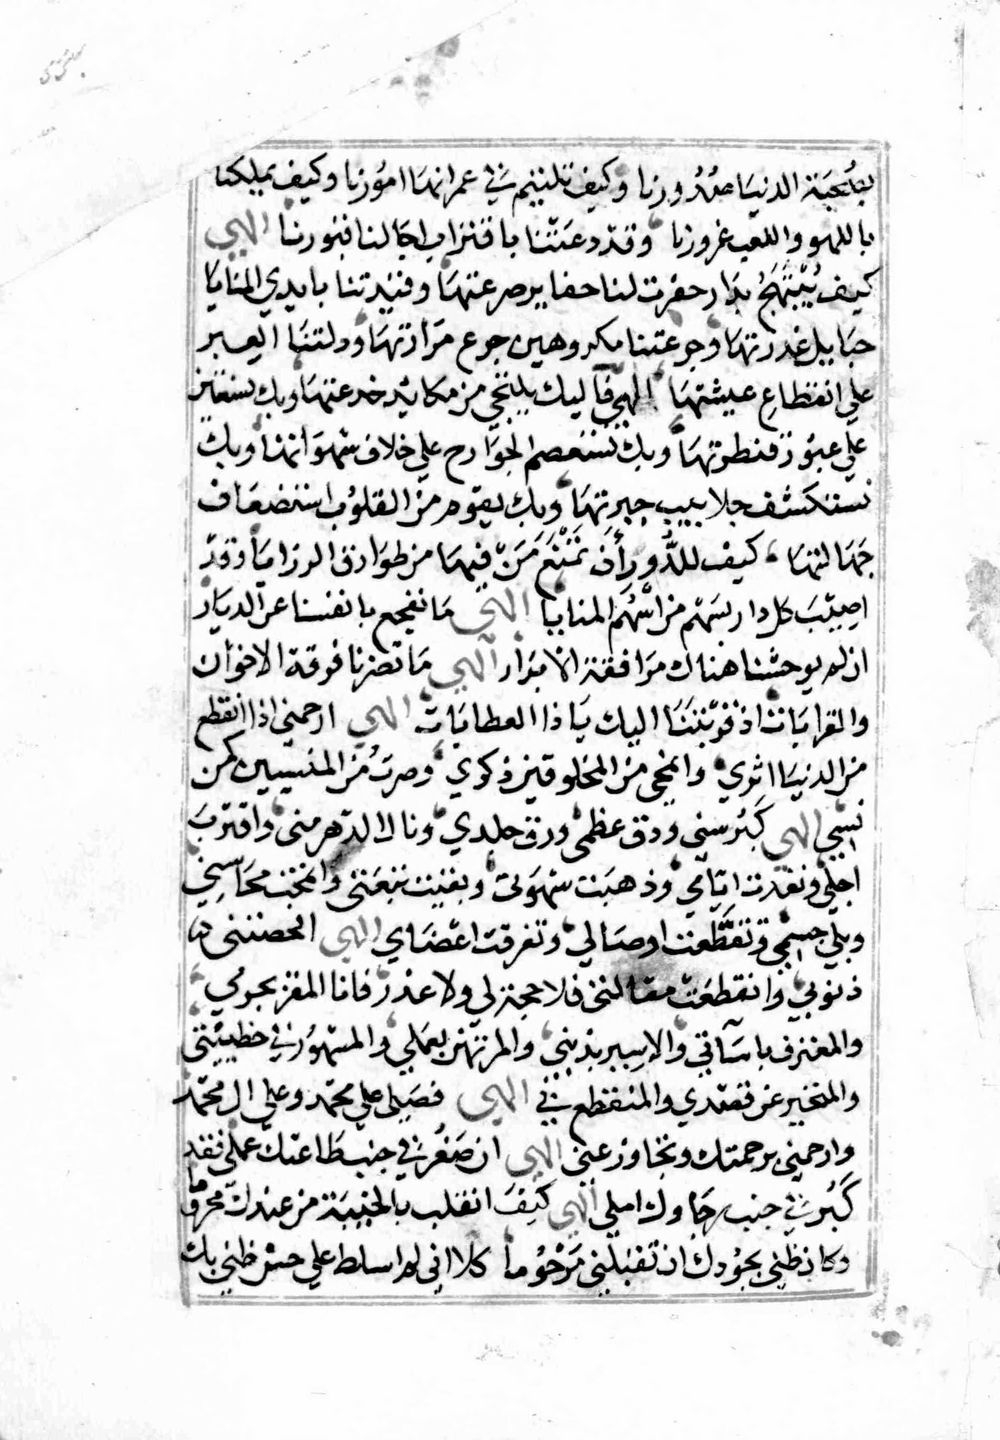 بمحبة الدنيا صدورنا وكيف تلتئم في عمرانها امورنا وكيف يملكنا
باللهو واللعب غرورنا وقد دعتنا باقتراب اجالنا قبورنا الهي
كيف نبتهج بدار حفرت لنا حفاير صرعتها وفتلتنا بايدي المنايا
حبايل غدرتها وجرعتنا مكروهين جرع مرارتها ودلتنا العبر
على انقطاع عيشتها الهي فاليك نلتجي من مكائد خدعتها وبك نستعين
على عبور قنطرتها وبك نستعصم الجوارح على خلاف شهوانها وبك
نستكشف جلابيب حيرتها وبك يقوم من القلوب استصعاف
جهالتها كيف للدور أن تمنع من فيها من طوارق الرزايا وقد
اصيب كل دار سهم من أسهم المنايا الهي ما نفجع بانفسنا عن الديار
ان لم يوحشنا هناك مرافقة الابرار الهي ما تضرنا فرقة الاخوان
والقرابات اذ قربتنا اليك يا ذا العطايات الهي ارحمني اذا انقطع
من الدنيا اثري وانمحى من المخلوقين ذكري وصرت من المنسيين كمن
نسي الهي كبر سني ودق عظمي ورق جلدي ونال الدهر مني واقترب
اجلي ونفدت ايامي وذهبت شهوتي وبقيت تبعتي وانمحت محاسني
وبلي جسمي وتقطعت اوصالي وتفرقت اعضاي الهي افحمتني
ذنوبي وانقطعت مقالتي فلا حجة لي ولا عذر فانا المقر بجرمي
والمعترف باسآتي والاسير بذنبي والمرتهن بعملي والمتهور في خطيئتي
والمتحير عن قصدي والمنقطع بي الهي فصلى على محمد وعلى ال محمد
وارحمني برحمتك وتجاوز عني الهي ان صغر في جنب طاعتك عملي فقد
كبر في جنب رجاوك املي الهي كيف انقلب بالخيبة من عندك محروما
وكان ظني بجودك ان تقبلني مرحوما كلا اني لم اسلط على حسن ظني بك